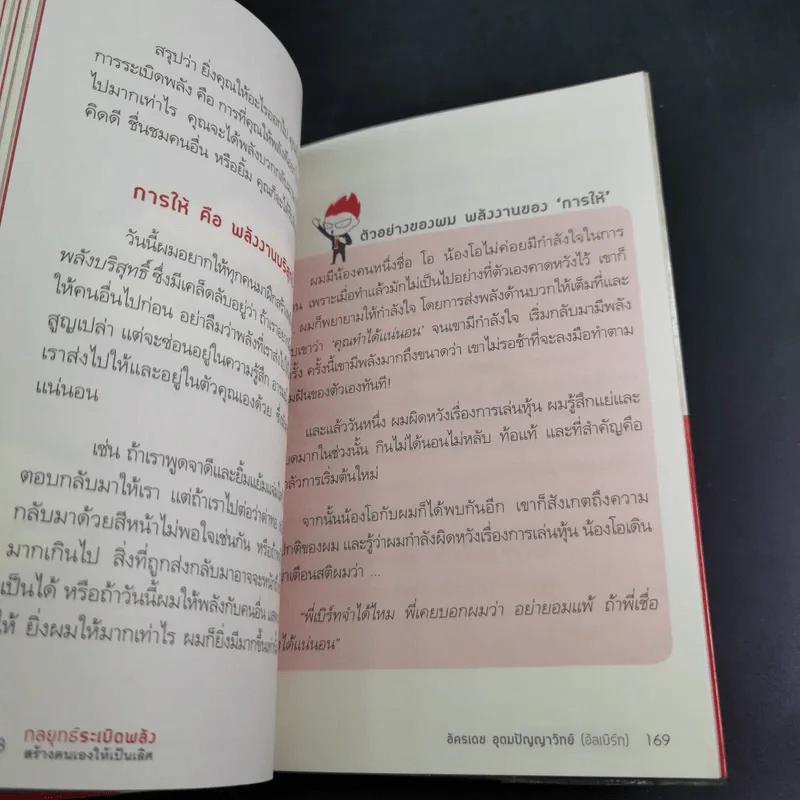 สรุปว่า ยิ่งคุณให้อะไรออกไป
การระเบิดพลัง คือ การที่คุณให้พลังกับ
ไปมากเท่าไร คุณจะได้พลังบวกกลับ
คิดดี ชื่นชมคนอื่น หรือยิ้ม คุณก็จะได้
การให้ คือ พลังงานบริสุทธิ์
วันนี้ผมอยากให้ทุกคนมาฝึกสร้าง
พลังบริสุทธิ์ ซึ่งมีเคล็ดลับอยู่ว่า ถ้าเรา
ให้คนอื่นไปก่อน อย่าลืมว่าพลังที่เราส่งไป
สูญเปล่า แต่จะซ่อนอยู่ในความรู้สึก
เราส่งไปให้และอยู่ในตัวคุณเองด้วย
แน่นอน
เช่น ถ้าเราพูดจาดีและยิ้มแย้ม
ตอบกลับมาให้เรา แต่ถ้าเราไปต่อว่าด่าทอ
กลับมาด้วยสีหน้าไม่พอใจเช่นกัน หรือถ้า
มากเกินไป สิ่งที่ถูกส่งกลับมาอาจจะ
เป็นได้ หรือถ้าวันนี้ผมให้พลังกับคนอื่น
ให้ ยิ่งผมให้มากเท่าไร ผมก็ยิ่งมีมากขึ้นเท่า
8 กลยุทธ์ระเบิดพลัง
สร้างตนเองให้เป็นเลิศ
ตัวอย่างของผม พลังงานของ ‘การให้’
ผมมีน้องคนหนึ่งชื่อ โอ น้องโอไม่ค่อยมีกำลังใจในการ
เพราะเมื่อทำแล้วมักไม่เป็นไปอย่างที่ตัวเองคาดหวังไว้ เขาก็
ผมก็พยายามให้กำลังใจ โดยการส่งพลังด้านบวกให้เต็มที่และ
เขาว่า ‘คุณทำได้แน่นอน’ จนเขามีกำลังใจ เริ่มกลับมามีพลัง
ครั้งนี้เขามีพลังมากถึงขนาดว่า เขาไม่รอช้าที่จะลงมือทำตาม
ฝันของตัวเองทันที!
และแล้ววันหนึ่ง ผมผิดหวังเรื่องการเล่นหุ้น ผมรู้สึกแย่และ
มากในช่วงนั้น กินไม่ได้นอนไม่หลับ ท้อแท้ และที่สำคัญคือ
การเริ่มต้นใหม่
จากนั้นน้องโอกับผมก็ได้พบกันอีก เขาก็สังเกตถึงความ
ปกติของผม และรู้ว่าผมกำลังผิดหวังเรื่องการเล่นหุ้น น้องโอเดิน
มาเตือนสติผมว่า ...
“พี่เบิร์ทจำได้ไหม พี่เคยบอกผมว่า อย่ายอมแพ้ ถ้าพี่เชื่อ
ได้แน่นอน”
อัครเดช อุดมปัญญาวิทย์ (อัลเบิร์ท) 169